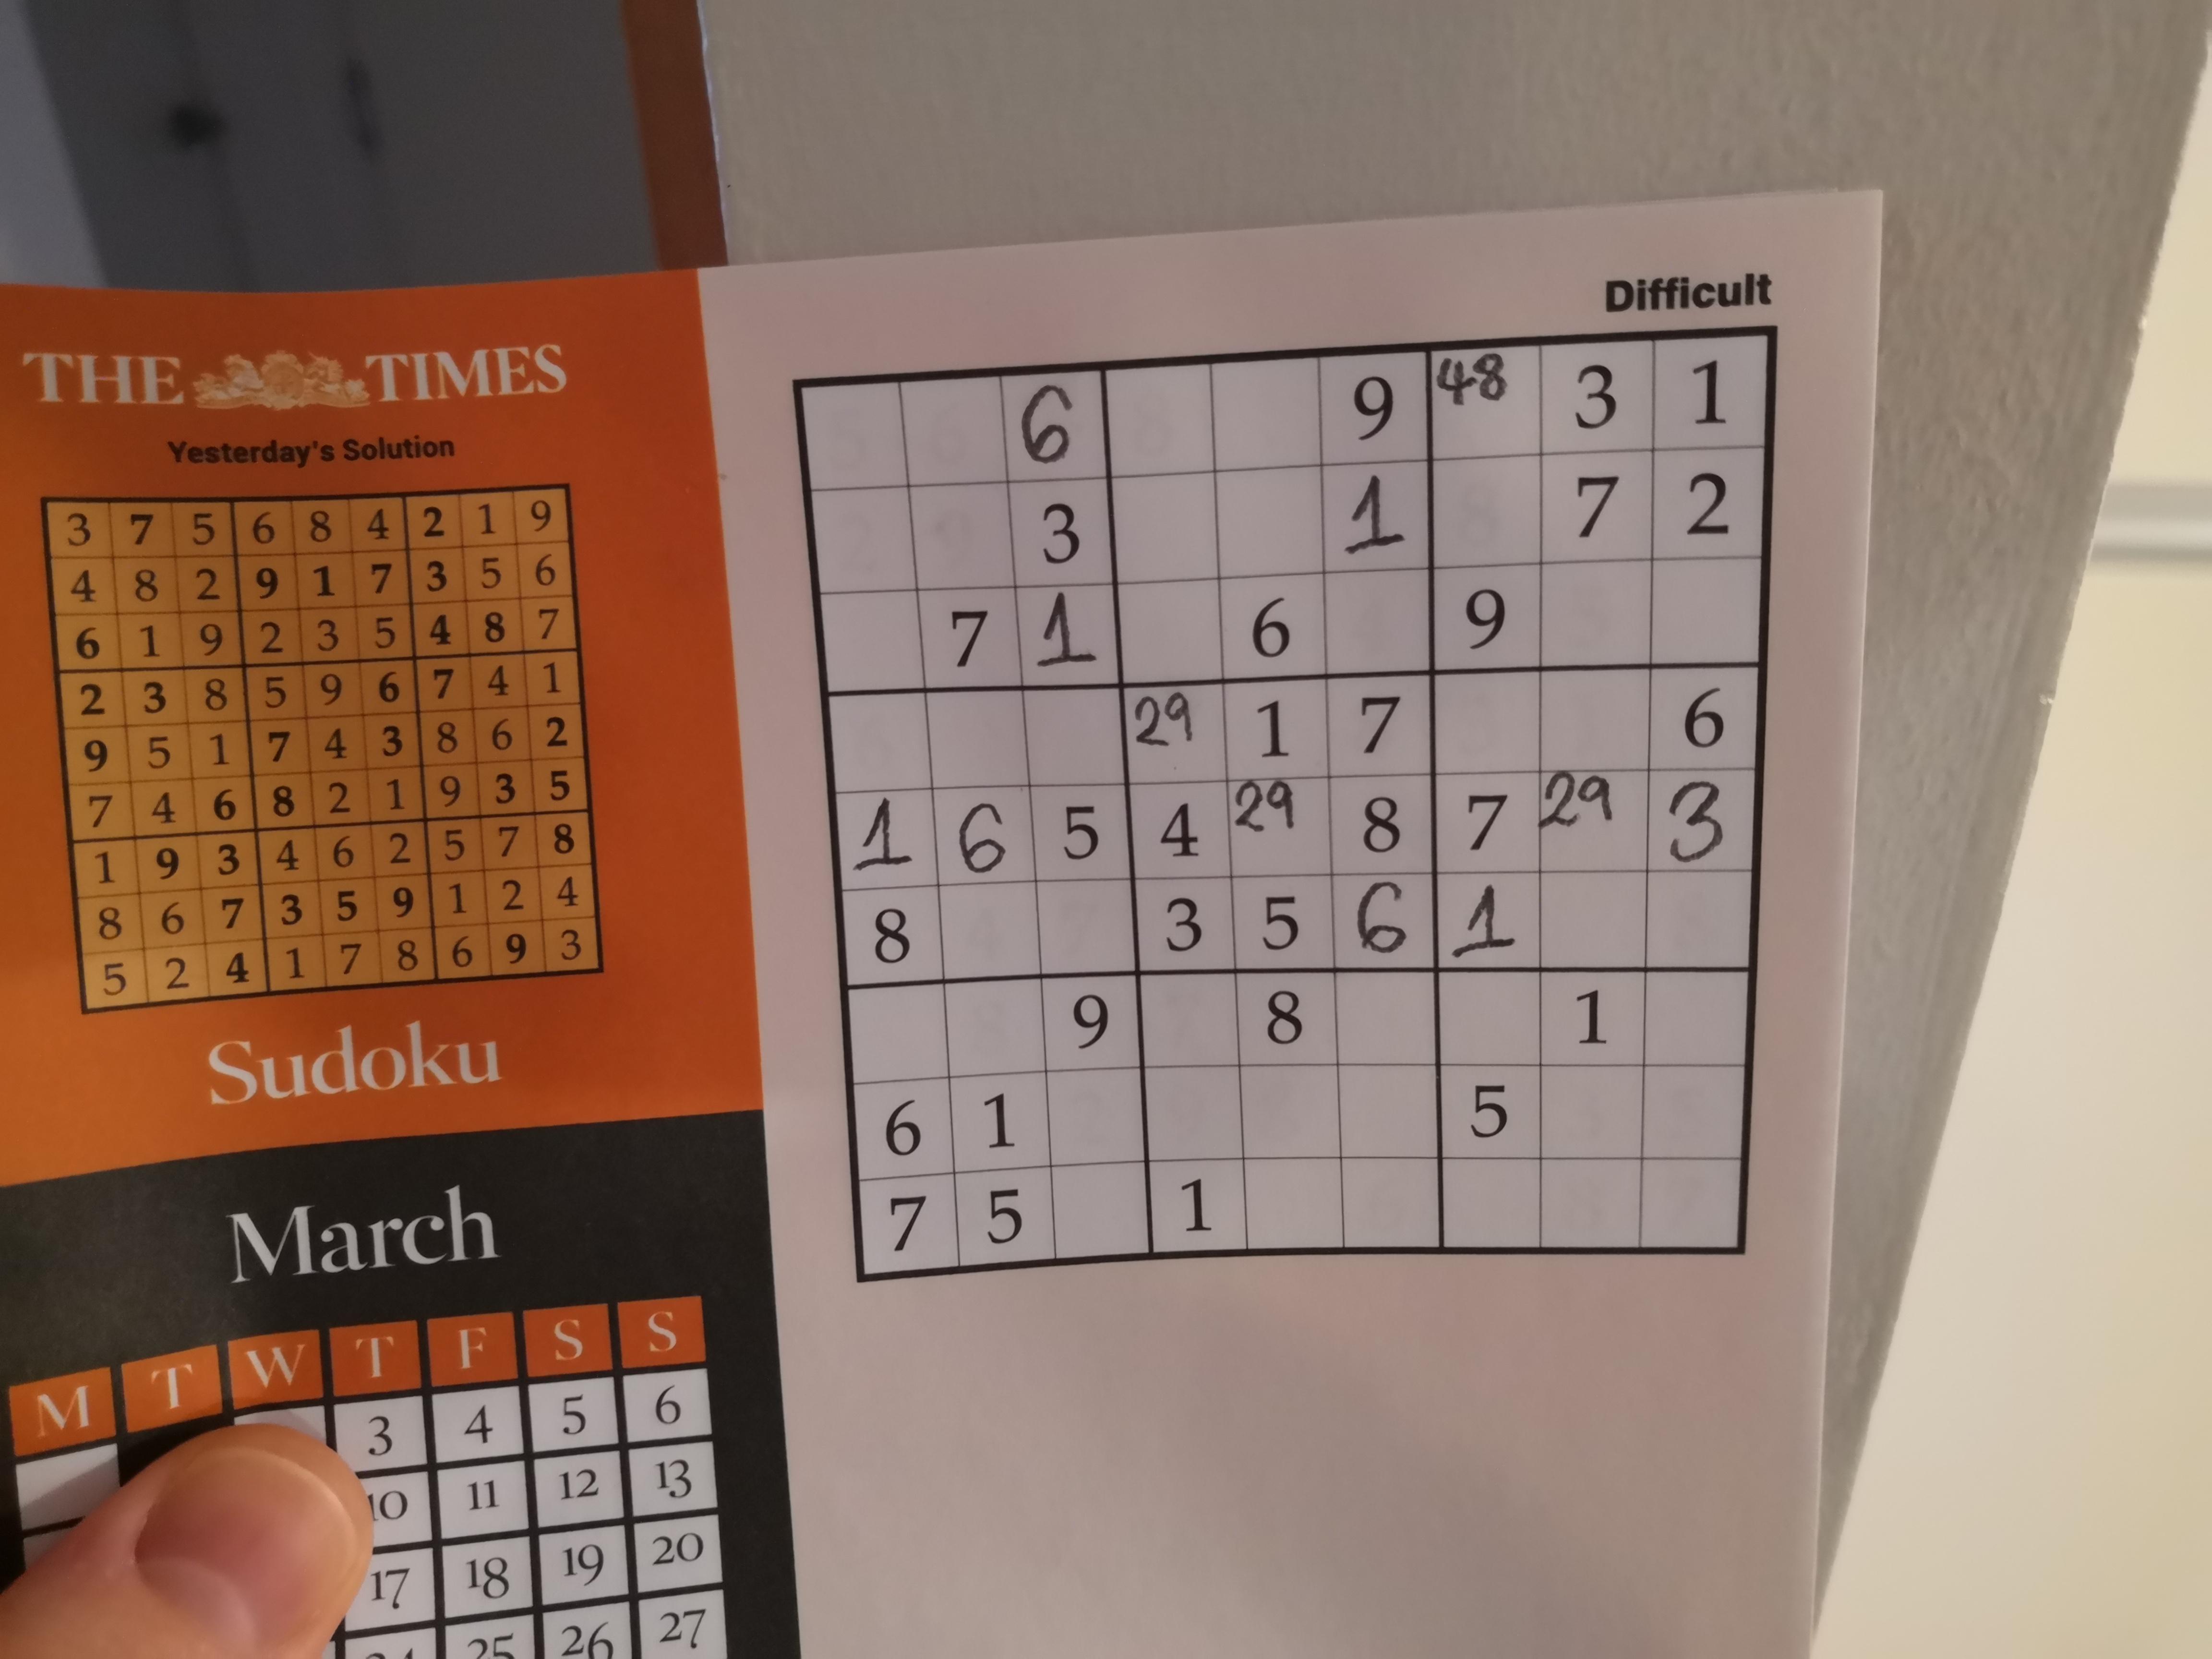 Difficult
THE TIMES
Yesterday's Solution
3 7 5 6 8 4 2 1 9
4 8 2 9 1 7 3 5 6
6 1 9 2 3 5 4 8 7
2 3 8 5 9 6 7 4 1
9 5 1 7 4 3 8 6 2
7 4 6 8 2 1 9 3 5
1 9 3 4 6 2 5 7 8
8 6 7 3 5 9 1 2 4
5 2 4 1 7 8 6 9 3
Sudoku
March
M T W T F S S
3 4 5 6
10 11 12 13
17 18 19 20
25 26 27
6 9 48 3 1
3 1 7 2
7 1 6 9
29 1 7 6
1 6 5 4 29 8 7 29 3
8 3 5 6 1
9 8 1
6 1 5
7 5 1